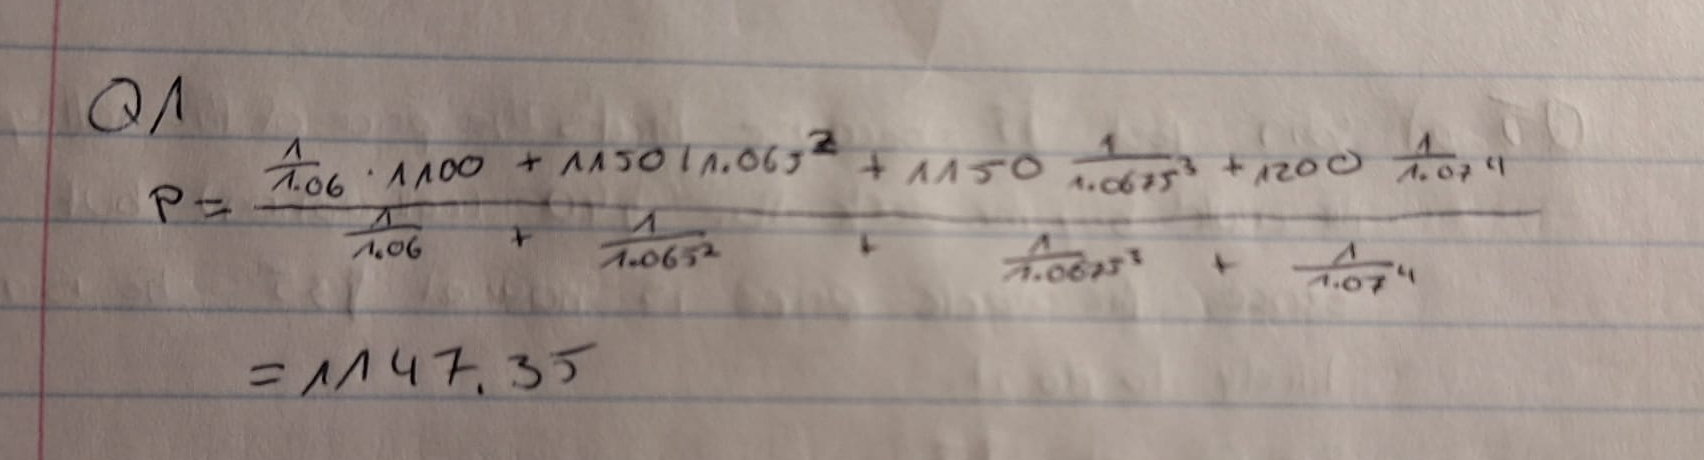 Q1
P = (1/1.06 · 1100 + 1150/1.065² + 1150 1/1.0675³ + 1200 1/1.07⁴) / (1/1.06 + 1/1.065² + 1/1.0675³ + 1/1.07⁴)
= 1147.35